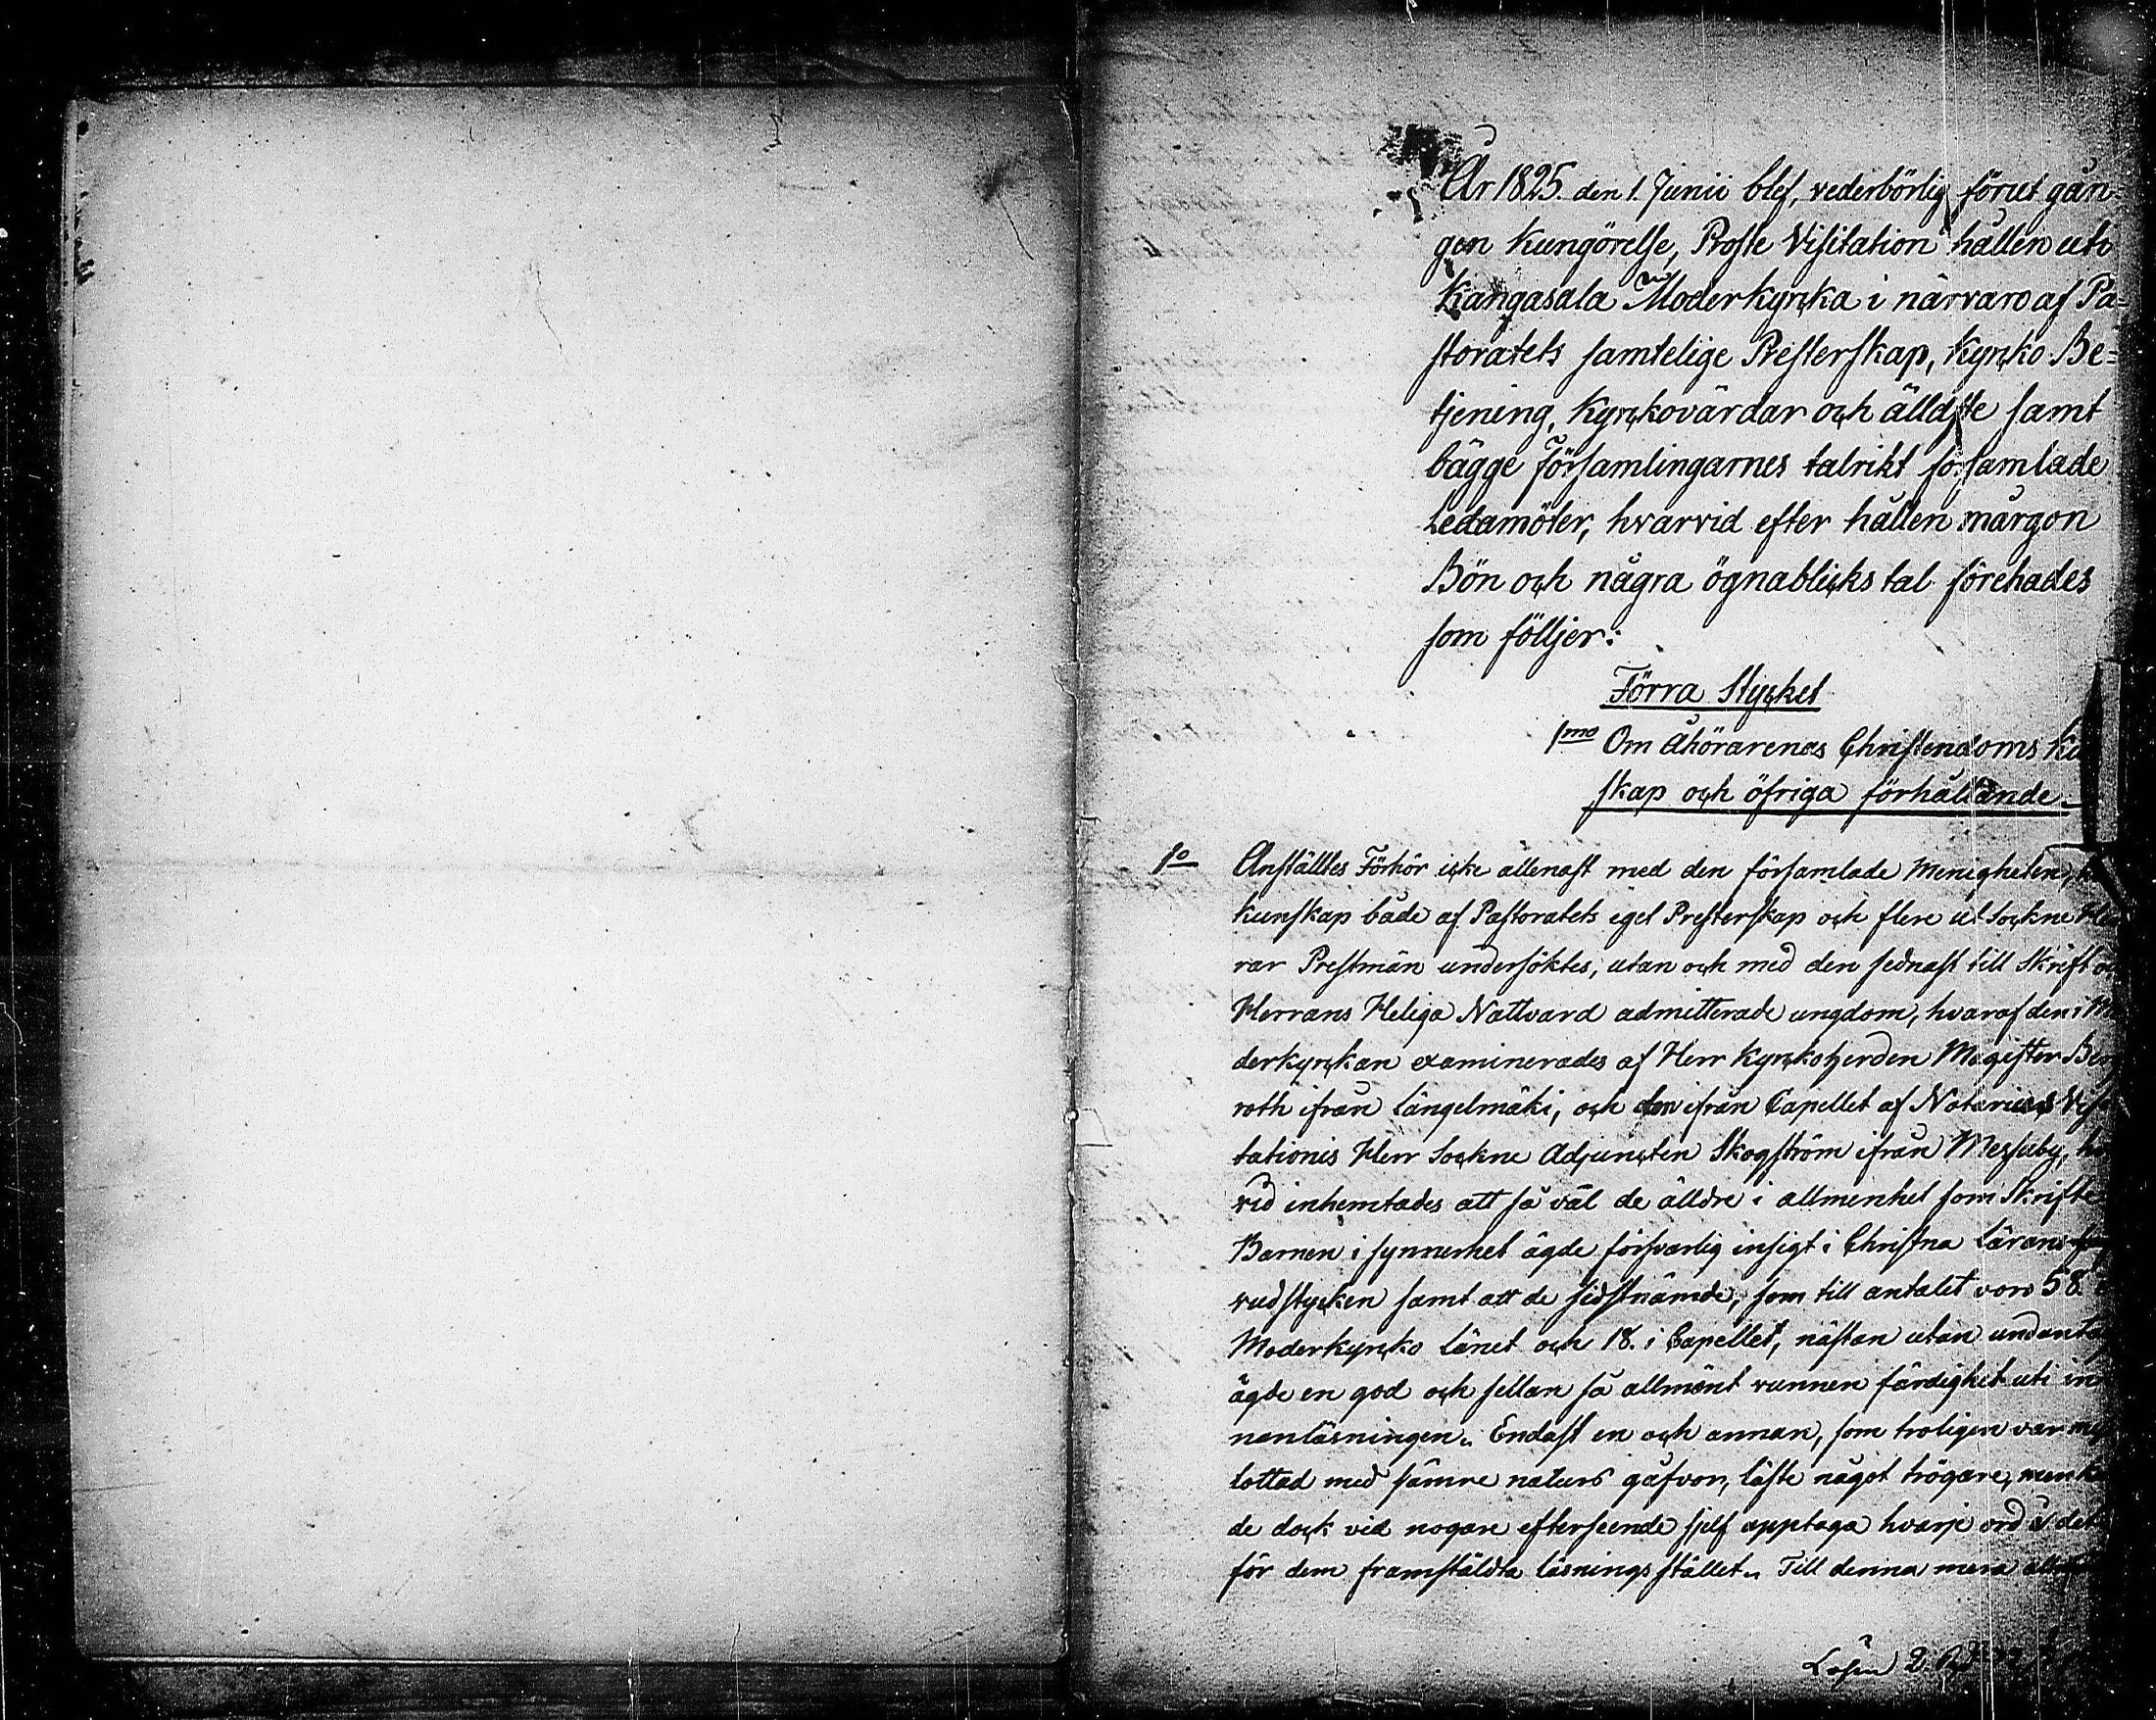 År 1825. den 1. Junii blef, vederbörlig förut gån-
gen Kungörelse, Proste Visitation hållen uti
Kangasala Moderkyrcka i närvaro af Pa=
storatets samtelige Presterskap, Kyrcko Be=
tjening, Kyrckovärdar och älldste samt
bägge Församlingarnes talrikt församlade
Ledamöter, hvarvid efter hållen mårgon
Bön och några ögnablicks tal förehades
som följjer:
Förra Stycket
1mo Om Åhörarenas Christendoms
skap och öfriga förhållande.
1o Anställtes Förhör icke allenast med den församlade Menigheten,
kunskap både af Pastoratets eget Presterskap och flere ut Sockne
rar Prestmän undersöktes, utan och med den sednast till Skrift
Herrans Heliga Nattvard admitterade ungdom, hvaraf den i
derkyrckan examinerades af Herr Kyrckoherden Magister
roth ifrån Längelmäki, och den ifrån Capellet af Notarius
tationis Herr Sockne Adjuncten Skogström ifrån Messuby,
vid inhemtades att så väl de älldre i allmenhet som Skrifte
Barnen i synnerhet ägde försvarlig insigt i Christna Lärans
vudstycken samt att de sidstnämde, som till antalet voro 58.
Moderkyrcko länet och 18. i Capellet, nästan utan
ägde en god och sellan så allmänt vunnen färdighet uti
nanläsningen. Endast en och annan, som troligen var
lottad med sämre naturs gåfvor, läste något trögare,
de dock vid nogare efterseende sjelf upptaga hvarje ord
för dem framställda läsnings stället. Till denna mera
Lösen 2.